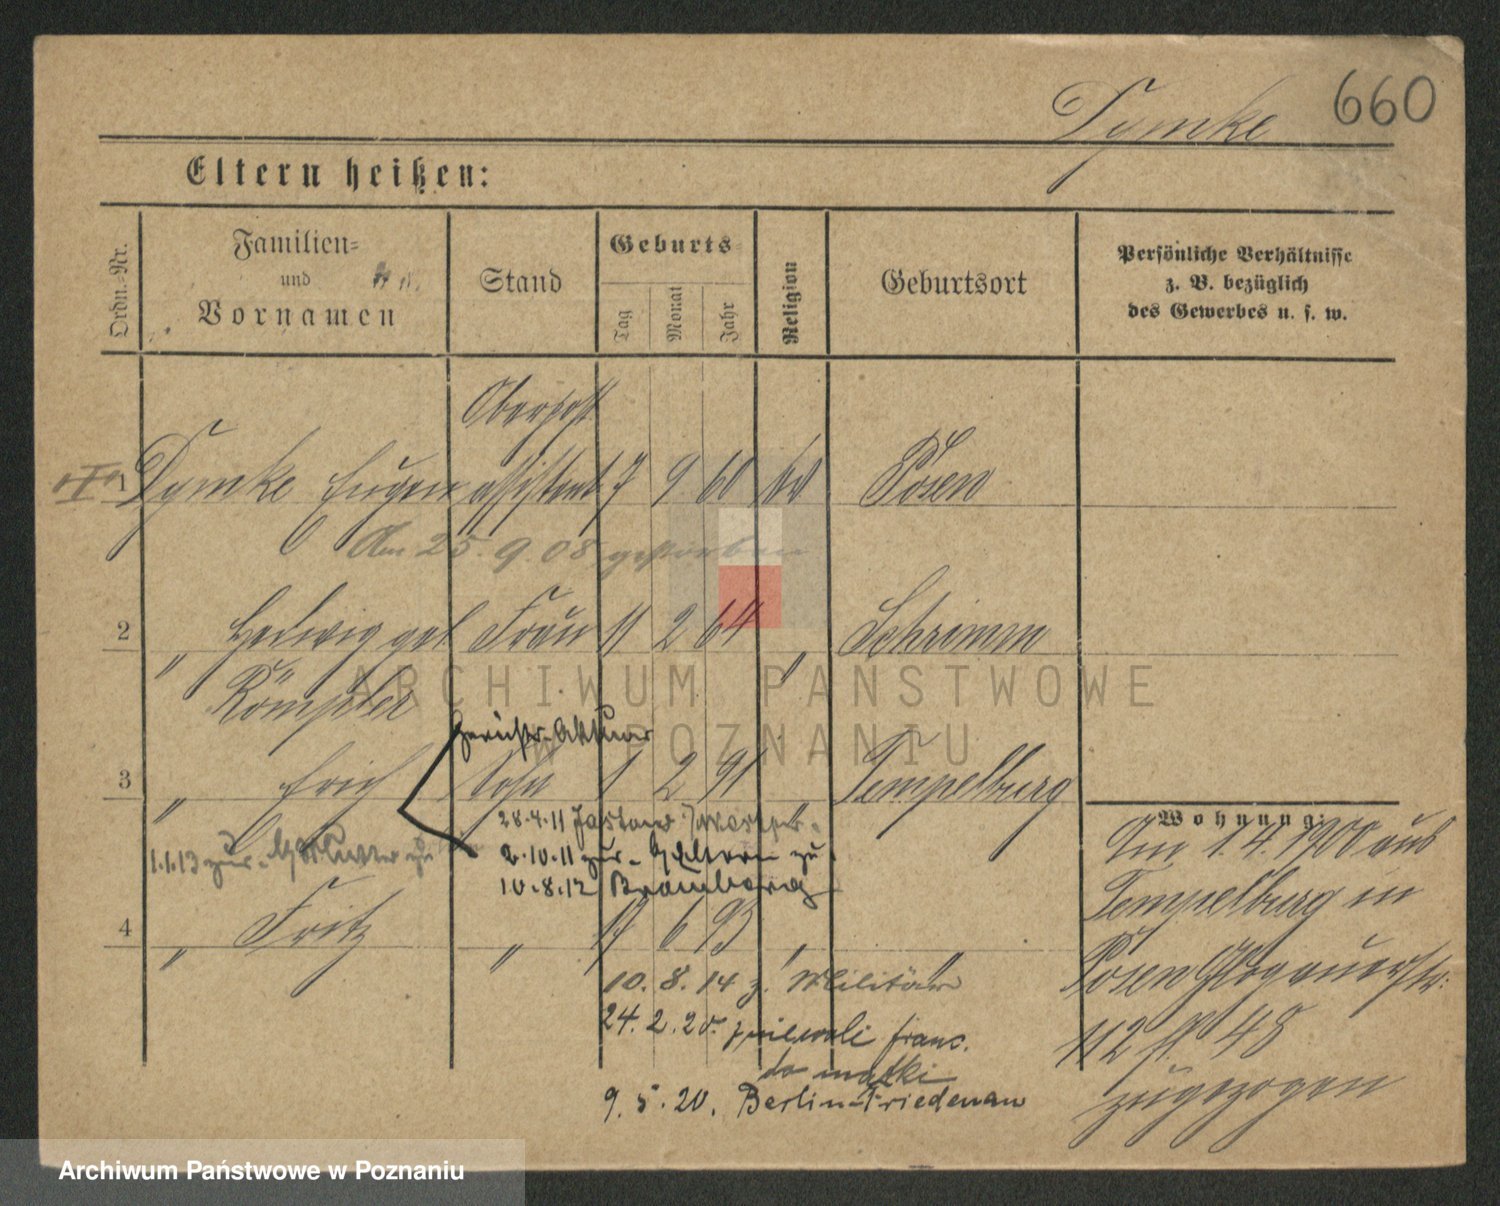 660
Tymke
Eltern heißen:
Ordn.-Nr.
Familien-
und
Vornamen
Stand
Geburts
Tag
Monat
Jahr
Religion
Geburtsort
Persönliche Verhältnisse
z. B. bezüglich
des Gewerbes u. s. w.
Oberpost
1 Tymke Eugen assistent 7 9 60 Posen
Am 25.9.08 gestorben
2 " Hedwig geb. Frau 11 2 64 " Schrimm
Römpler
Gerichts-Aktuar
3 " Erich Sohn 1 2 91 " Tempelburg
28.4.11
2.10.11 zur. Eltern zu
1.1.13 zur. Mutter
10.8.12 Bromberg
4 " Fritz " 17 6 93 " "
10.8.14 z. Militär
24.2.20. franc.
do matki
9.5.20. Berlin-Friedenau
Wohnung:
Am 1.4.1900 aus
Tempelburg in
Posen Glogauerstr.
112 48
zugezogen
ARCHIWUM PAŃSTWOWE
W POZNANIU
Archiwum Państwowe w Poznaniu